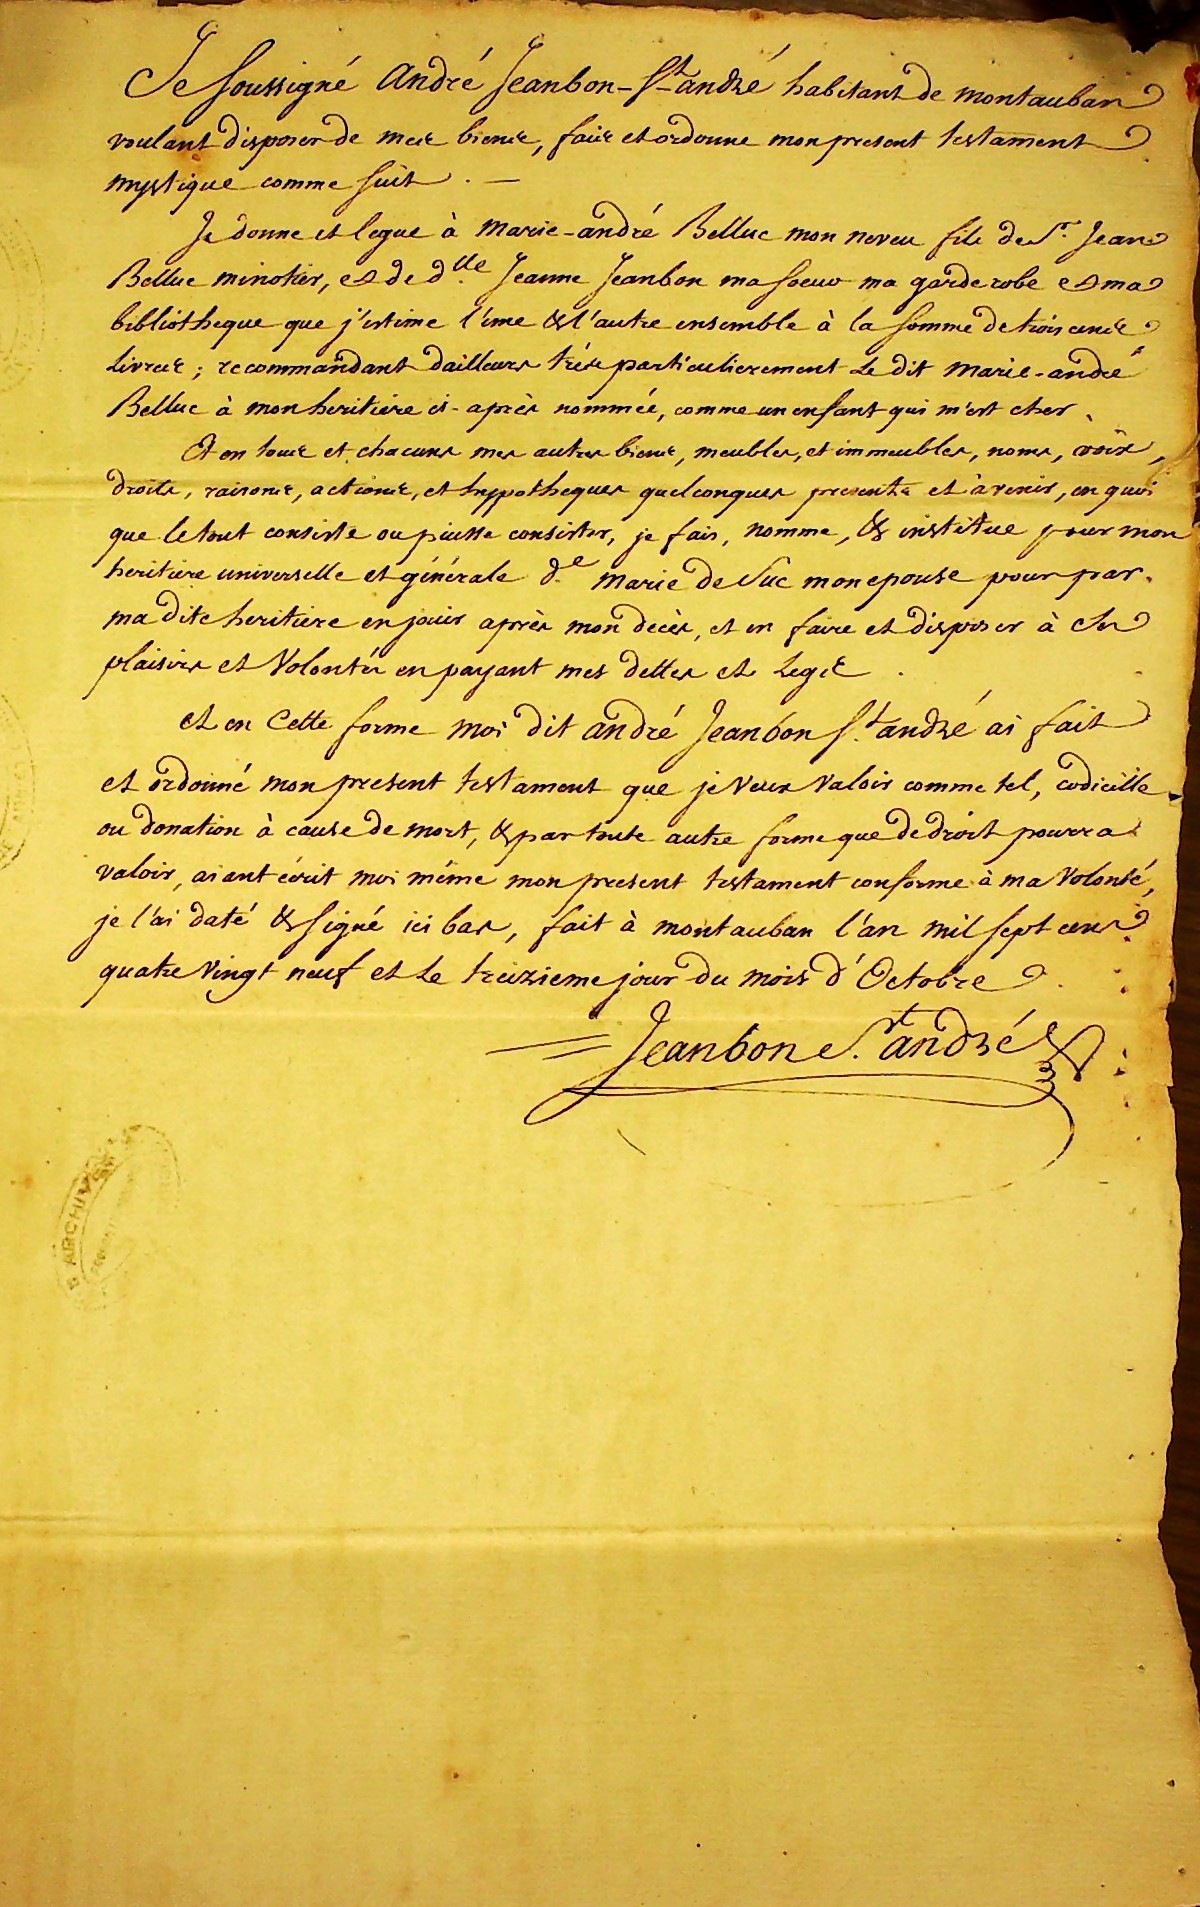 Je soussigné André Jeanbon-St-André habitant de Montauban
voulant disposer de mes biens, fais et ordonne mon present testament
mystique comme suit . —
Je donne et legue à Marie-André Belluc mon neveu fils de Sr. Jean
Belluc minotier, et de dlle Jeanne Jeanbon ma soeur ma garde robe et ma
bibliotheque que j'estime l'une & l'autre ensemble à la somme de trois cens
livres ; recommandant dailleurs très particulierement Le dit Marie-andré
Belluc à mon heritière ci-après nommée, comme un enfant qui m'est cher .
Et en tous et chacuns mes autres biens, meubles, et immeubles, noms, voix,
droits, raisons, actions, et hyppotheques quelconques presents et à venir, en quoi
que le tout consiste ou puisse consister, je fais, nomme, & institue pour mon
heritière universelle et générale de Marie de Suc mon epouse pour par
ma dite heritière en jouir après mon decès, et en faire et disposer à ses
plaisirs et Volontés en payant mes dettes et Legs .
et en Cette forme moi dit andré Jeanbon St. andré ai fait
et ordonné mon present testament que je Veux Valoir comme tel, codicille
ou donation à cause de mort, & par toute autre forme que de droit pourra
valoir, aiant écrit moi même mon present testament conforme à ma Volonté,
je l'ai daté & signé ici bas, fait à montauban l'an mil sept cens
quatre vingt neuf et Le treizieme jour du mois d'Octobre .
Jeanbon St. andré
ARCHIVES